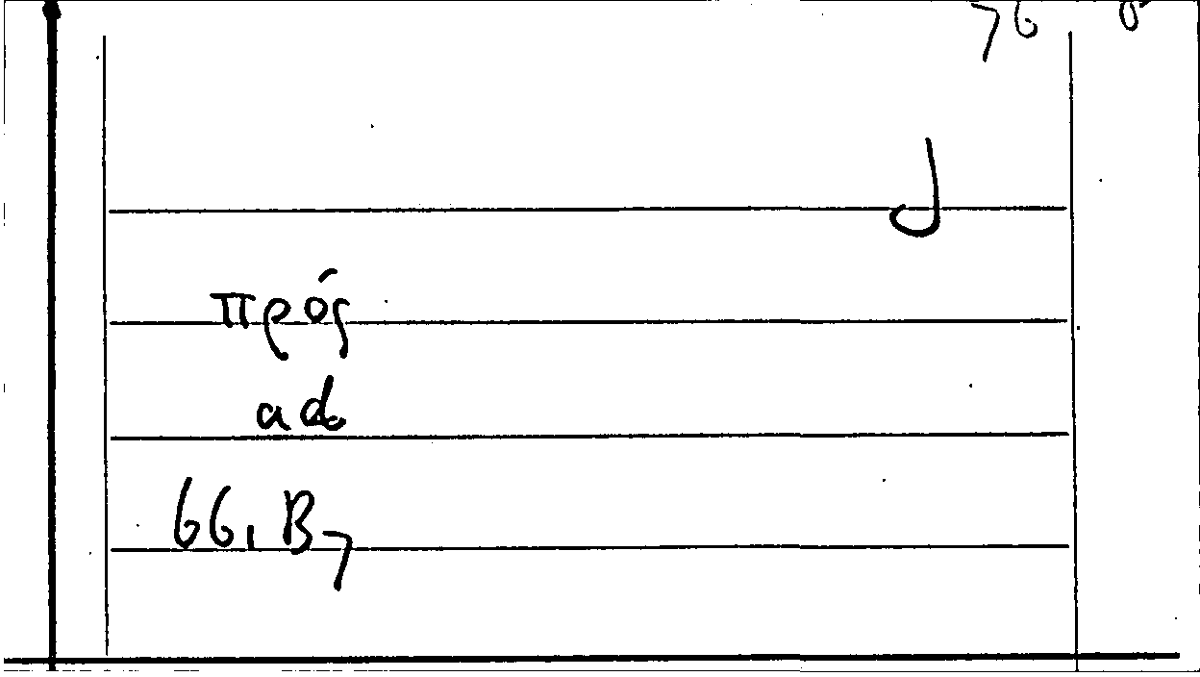 76
J
πρός
ad
66, B7